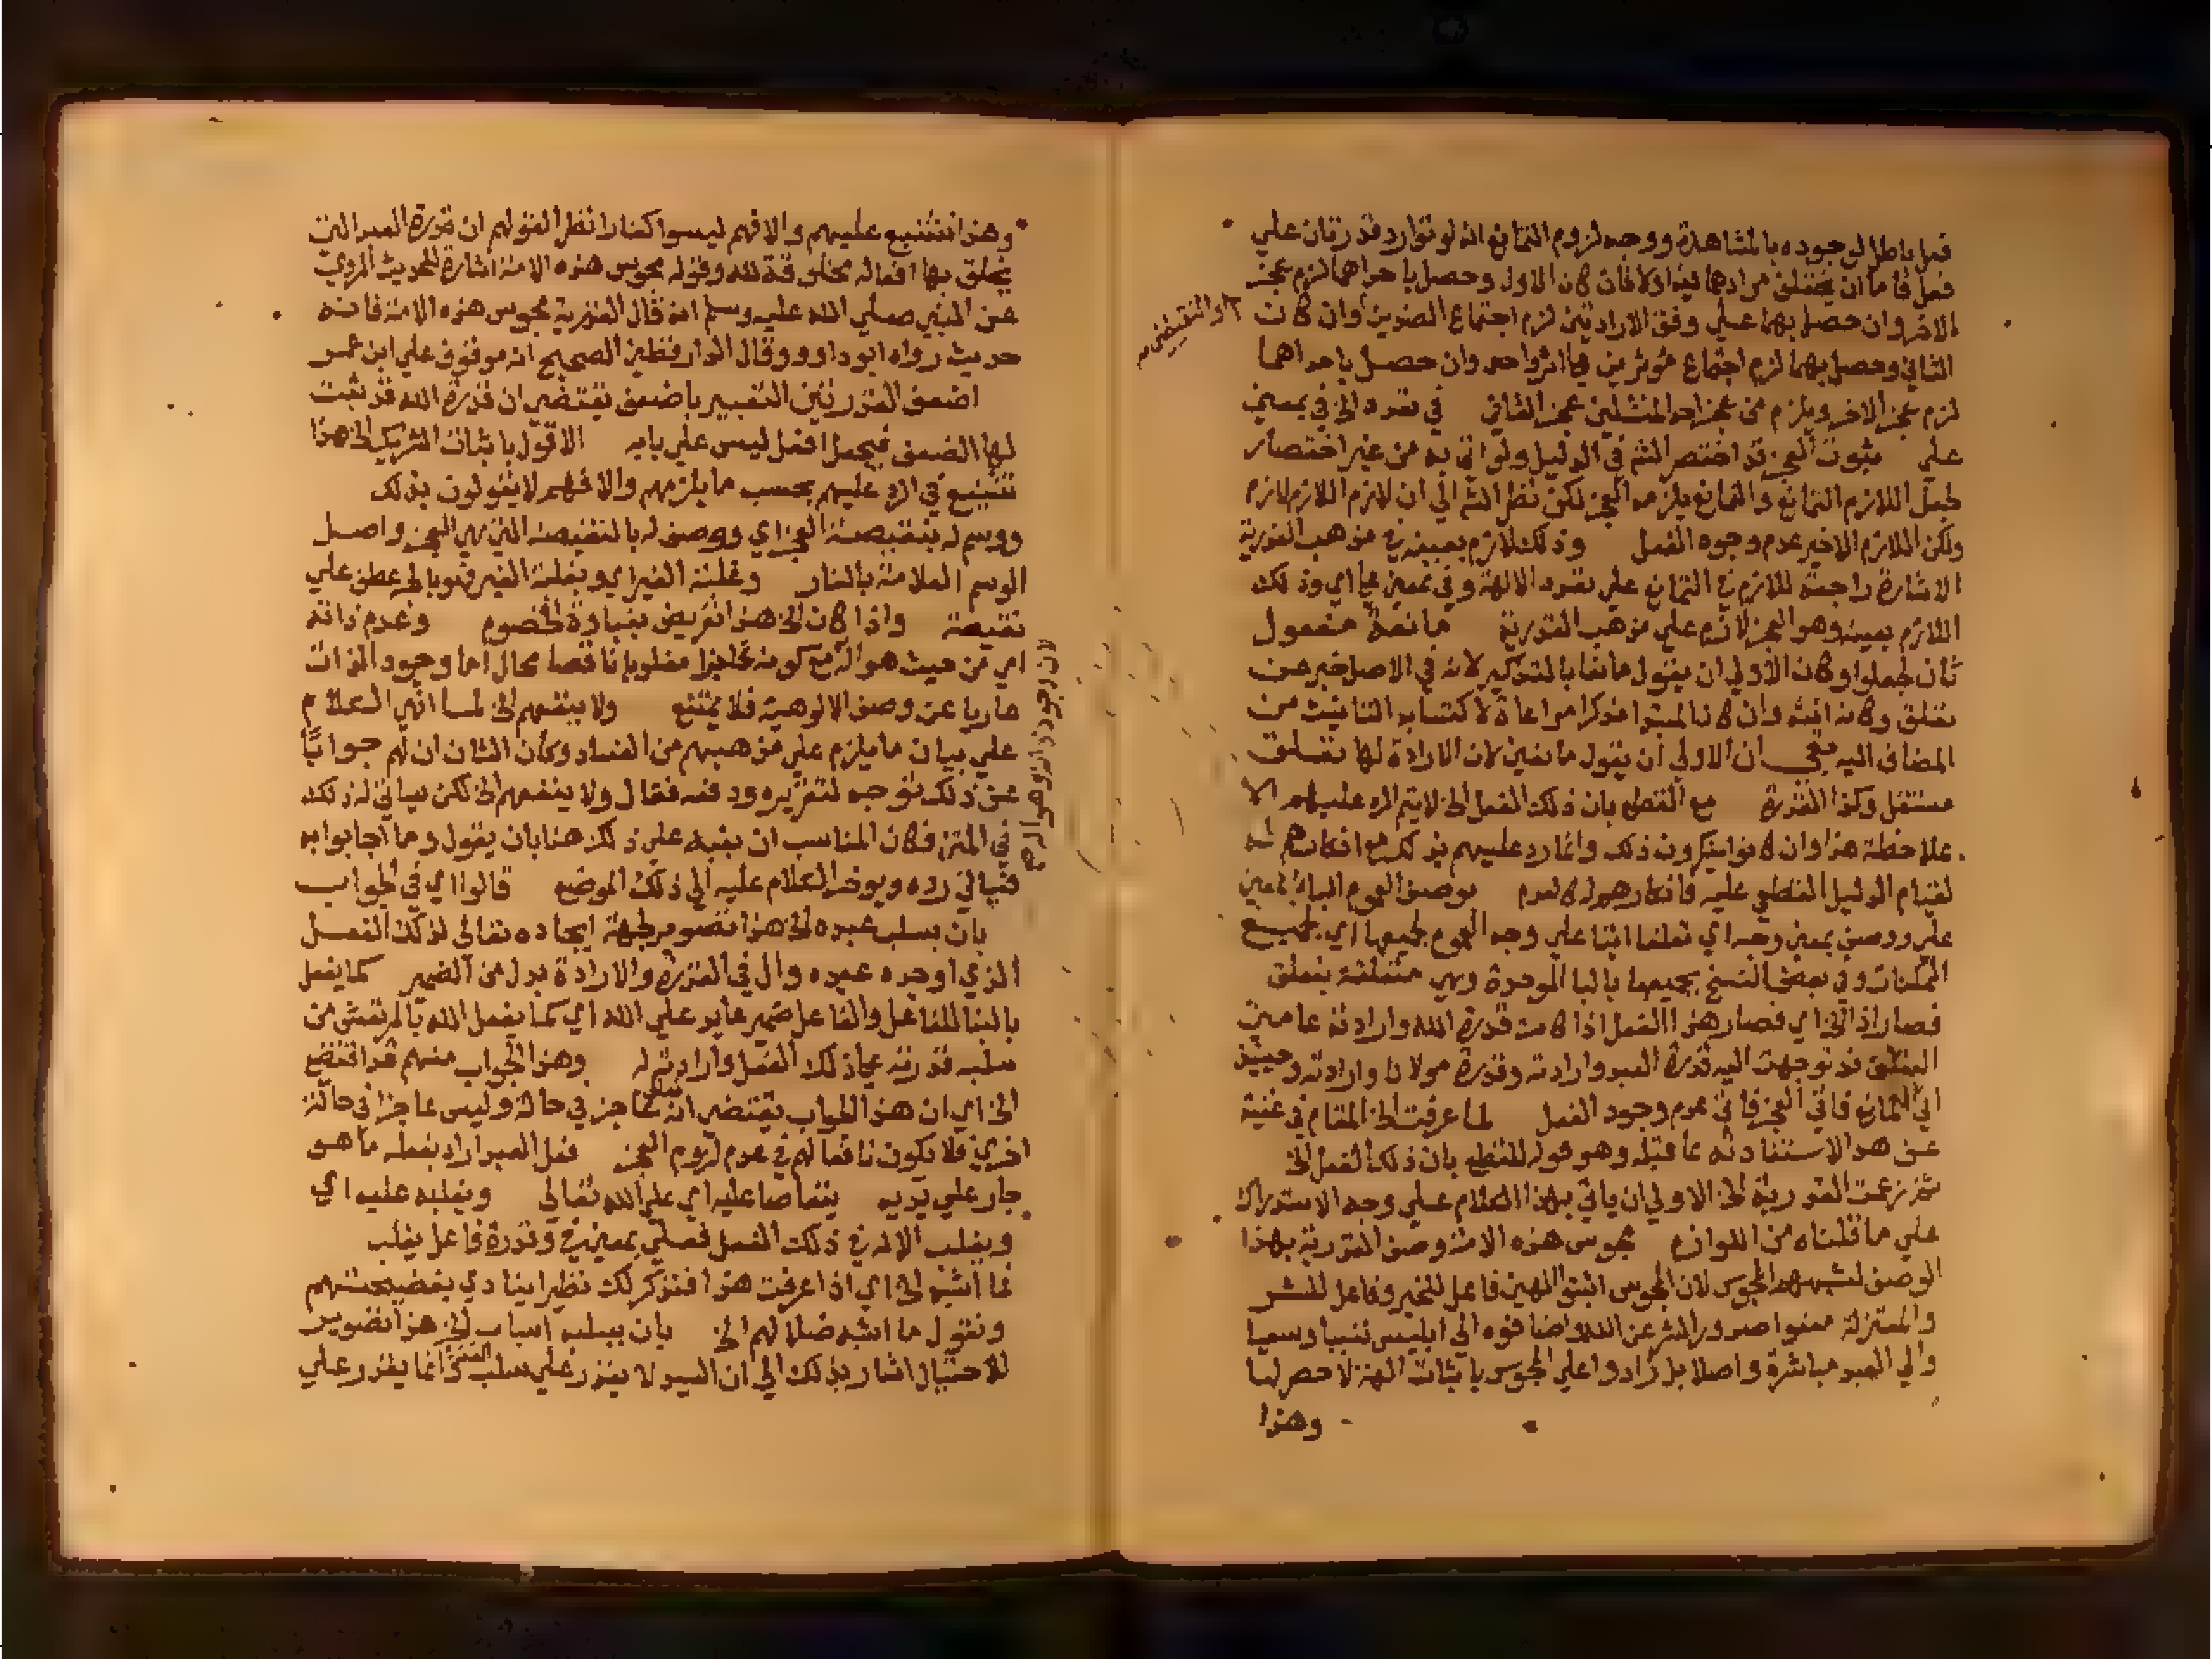 فعل باطل لوجوده بالمشاهدة ووجه لزوم التمانع انه لو توارد قدرتان علي
فعل فاما ان يختلف مرادهما فيه اولا فان كان الاول وحصل باحداهما لزم عجز
الاخر وان حصل بهما علي وفق الارادتين لزم اجتماع الضدين وان كان
او النقيضين
الثاني وحصل بهما لزم اجتماع مؤثرين في اثر واحد وان حصل باحداهما
لزم عجز الاخر ويلزم من عجز احد المثلين عجز الثاني في تعدد الخ في بمعني
علي ثبوت العجز قد اختصر الشم في الدليل ولو اتي به من غير اختصار
لجعل اللازم التمانع والتمانع يلزمه العجز لكن نظر الشم الي ان لازم اللازم لازم
ولكن اللازم الاخير عدم وجود الفعل وذلك لازم بعينه في مذهب القدرية
الاشارة راجعة للازم في التمانع علي تعدد الالهة وفي بمعني علي اي وذلك
اللازم بعينه وهو العجز لازم علي مذهب القدرية مانعة مفعول
ثان لجعلوا وكان الاولي ان يقول مانعا بالتذكير لانه في الاصل خبر عن
تعلق وكانه انثه وان كان المبتدا مذكرا مراعاة لاكتسابه التانيث من
المضاف اليه بقي ان الاولي ان يقول مانعين لان الارادة لها تعلق
مستقل وكذا القدرة مع القطع بان ذلك الفعل الخ لا يتم الرد عليهم الا
بملاحظة هذا وان كانوا ينكرون ذلك وانما رد عليهم بذلك مع انكارهم له
لقيام الدليل القطعي عليه فانكارهم له كالعدم بوصف العموم الباء بمعني
علي ووصف بمعني وجه اي تعلقا اتيا علي وجه العموم لجميعها اي لجميع
الممكنات وفي بعض النسخ بجميعها بالبا الموحدة وهي متعلقة بتعلق
فصار اذا الخ اي فصار هذا الفعل اذا كانت قدرة الله وارادته عامتي
التعلق قد توجهت اليه قدرة العبد وارادته وقدرة مولانا وارادته وحينئذ
اتي التمانع فاتي العجز فاتي عدم وجود الفعل لما عرفت الخ المقام في غنية
عن هذا الاستفادته مما قبله وهو قوله للقطع بان ذلك الفعل الخ
ثم زعمت القدرية الخ الاولي ان ياتي بهذا الكلام علي وجه الاستدراك
علي ما قلناه من اللوازم مجوس هذه الامة وصف القدرية بهذا
الوصف لشبههم المجوس لان المجوس اثبتوا الهين فاعل للخير وفاعل للشر
والمعتزلة منعوا صدور الشر عن الله واضافوه الي ابليس تسببا وسعيا
والي العبد مباشرة واصلا بل زادوا علي المجوس باثبات الهة لا حصر لها
وهذا
وهذا تشنيع عليهم والا فهم ليسوا كفارا نظرا لقولهم ان قدرة العبد التي
يخلق بها افعاله مخلوقة لله وقوله مجوس هذه الامة اشارة للحديث المروي
عن النبي صلي الله عليه وسلم انه قال القدرية مجوس هذه الامة فانه
حديث رواه ابو داوود وقال الدارقطني الصحيح انه موقوف علي ابن عمر
اضعف القدرتين التعبير باضعف يقتضي ان قدرة الله قد ثبت
لها الضعف فيجعل افعل ليس علي بابه الا قول باثبات الشريك الخ هذا
تشنيع في الرد عليهم بحسب ما يلزمهم والا فهم لا يقولون بذلك
ووسم له بنقيصة العجز اي ووصف له بالنقيصة التي هي العجز واصل
الوسم العلامة بالنار وغلبة الغير اي وبغلبة الغير فهو بالجر عطف علي
نقيصة واذا كان الخ هذا تعريض بغباوة الخصوم وعدم ذاته
اي من حيث هو اله مع كونه عاجزا مغلوبا ناقصا محال اما وجود الذات
لان وجود ذاته وهو اله مع
عاريا عن وصف الالوهية فلا يمتنع ولا ينفعهم الخ لما انهي الكلام
علي بيان ما يلزم علي مذهبهم من الفساد وكان الشان ان لهم جوابا
عن ذلك توجه لتقريره ودفعه فقال ولا ينفعهم الخ لكن سياتي له ذلك
في المتن فكان المناسب ان ينبه علي ذلك هنا بان يقول وما اجابوا به
فسياتي رده ويوخر الكلام عليه الي ذلك الموضع قالوا اي في الجواب
بان يسلب عبده الخ هذا تصوير لجهة ايجاده تعالي لذلك الفعل
الذي اوجده عبده وال في القدرة والارادة بدل من الضمير كما يفعل
بالبنا للفاعل والفاعل ضمير عايد علي الله اي كما يفعل الله بالمرتعش من
سلبه قدرته عن ذلك الفعل وارادته له وهذا الجواب منهم قد اقتضي
الخ اي ان هذا الجواب يقتضي انه تعالي عاجز في حالة وليس عاجزا في حالة
اخري فلا يكون نافعا لهم في عدم لزوم العجز فعل العبد اراد بفعله ما هو
جار علي يديه يتعاصا عليه اي علي الله تعالي ويغلبه عليه اي
ويغلب الاله في ذلك الفعل فعلي بمعني في وقدرة فاعل يغلب
فما اشبه الخ اي اذا عرفت هذا فنذكر لك نظيرا ينادي بفضيحتهم
ونقول ما اشبه ضلالهم الخ بان يسلبه اسباب الخ هذا تصوير
للاحتيال اشار بذلك الي ان السيد لا يقدر علي سلب القدرة انما يقدر علي